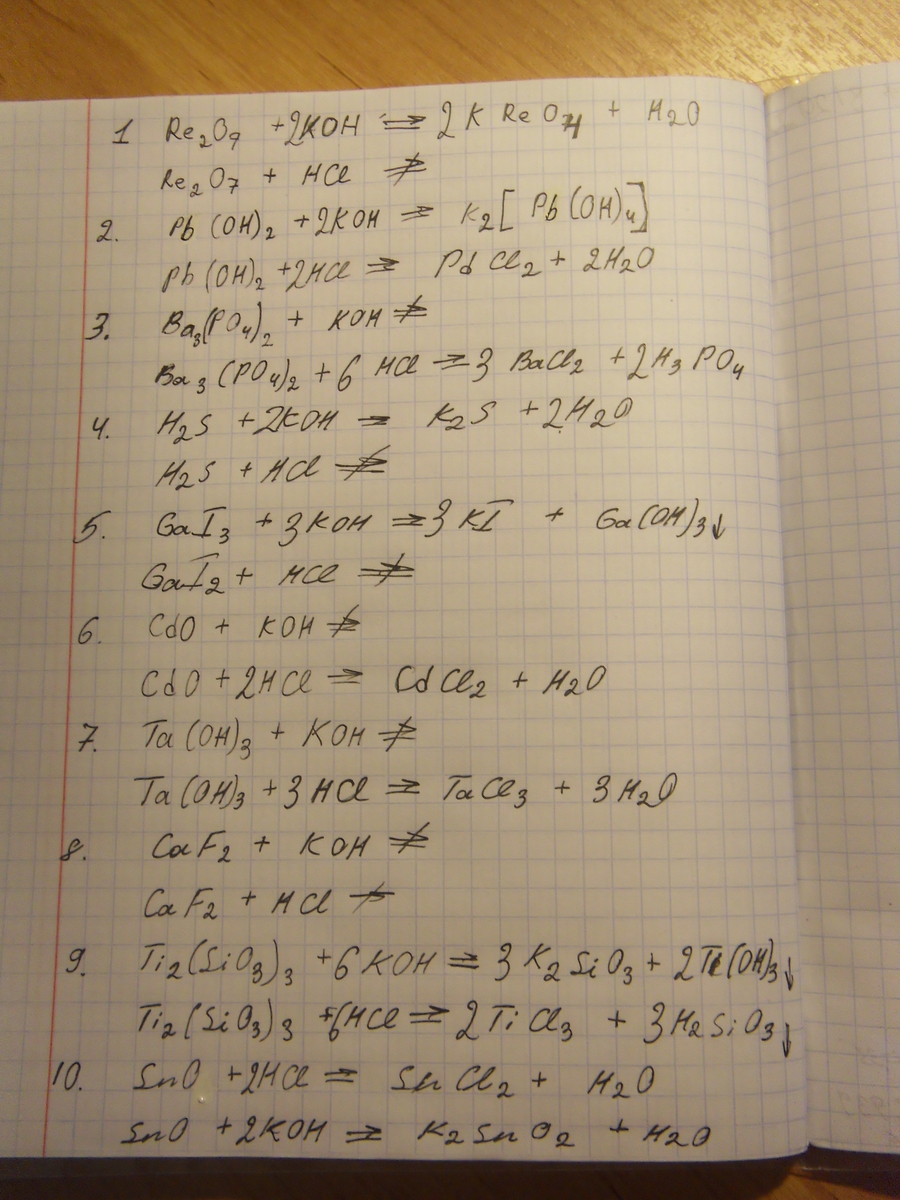 1 Re₂O₇ + 2KOH ⇒ 2KReO₄ + H₂O
Re₂O₇ + HCl ≠
2. Pb(OH)₂ + 2KOH ⇒ K₂[Pb(OH)₄]
Pb(OH)₂ + 2HCl ⇒ PdCl₂ + 2H₂O
3. Ba₃(PO₄)₂ + KOH ≠
Ba₃(PO₄)₂ + 6HCl ⇒ 3BaCl₂ + 2H₃PO₄
4. H₂S + 2KOH = K₂S + 2H₂O
H₂S + HCl ≠
5. GaI₃ + 3KOH ⇒ 3KI + Ga(OH)₃↓
GaI₂ + HCl ≠
6. CdO + KOH ≠
CdO + 2HCl ⇒ CdCl₂ + H₂O
7. Ta(OH)₃ + KOH ≠
Ta(OH)₃ + 3HCl ⇒ TaCl₃ + 3H₂O
8. CaF₂ + KOH ≠
CaF₂ + HCl ≠
9. Ti₂(SiO₃)₃ + 6KOH ⇒ 3K₂SiO₃ + 2Ti(OH)₃↓
Ti₂(SiO₃)₃ + 6HCl ⇒ 2TiCl₃ + 3H₂SiO₃↓
10. SnO + 2HCl = SnCl₂ + H₂O
SnO + 2KOH ⇒ K₂SnO₂ + H₂O